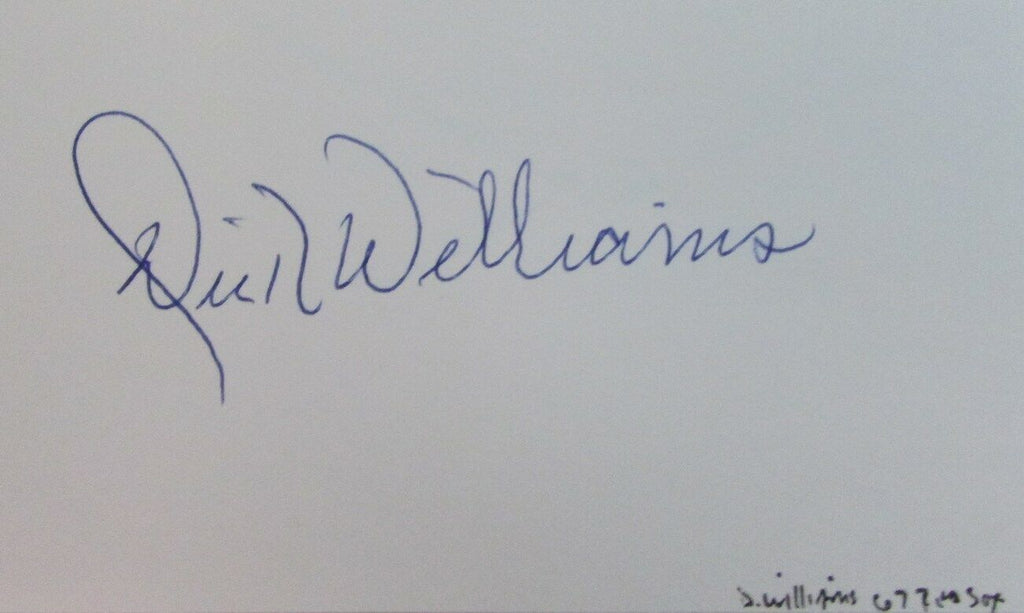 Dick Williams
D. Williams 67 Red Sox